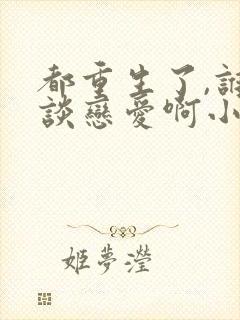 都重生了,誰
談戀愛啊小
姬夢瀅